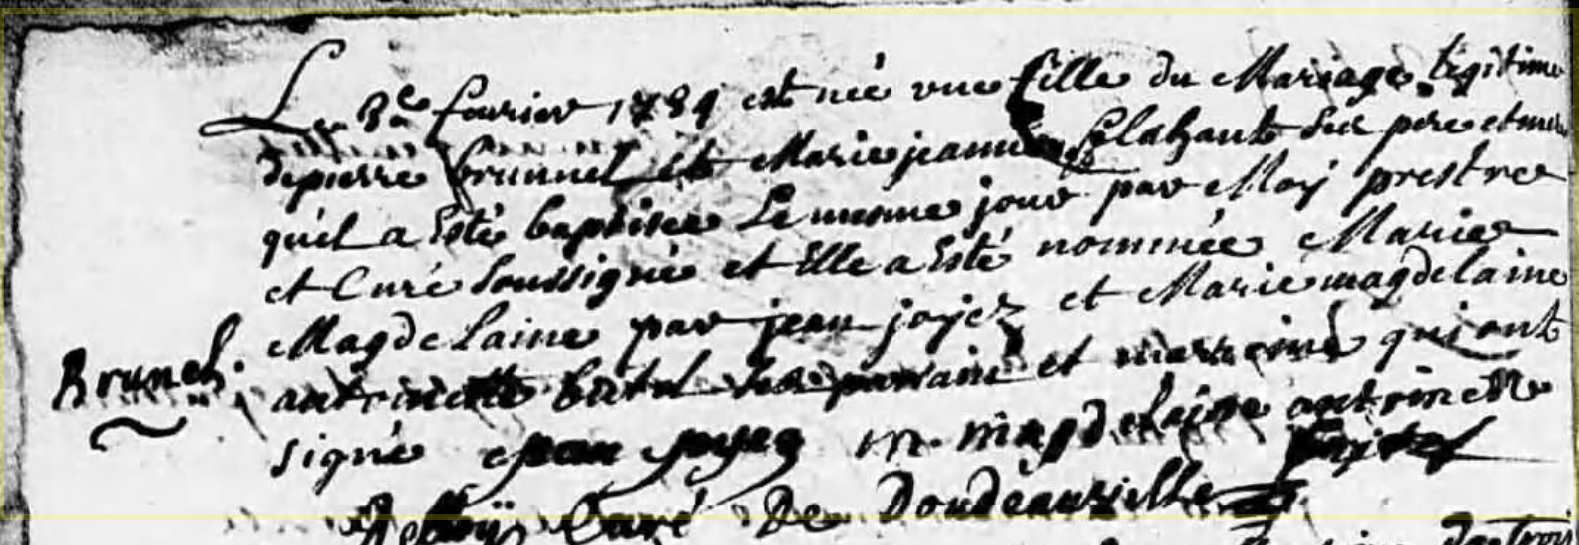 Le 3e feurier 1784 est née vne fille du Mariage legitime
de pierre brunnel et Marie jeanne ses pere et mere
qu'el a esté baptisee Le mesme jour par Moÿ prestre
et Curé soussigné et Elle a Esté nommée Marie
Magdelaine par jean joÿez et Marie magdelaine
Brunel
antoinette ses parrain et marreine qui ont
signé jean joyez m. magdelaine antoinette
Curé De Doudeauuille